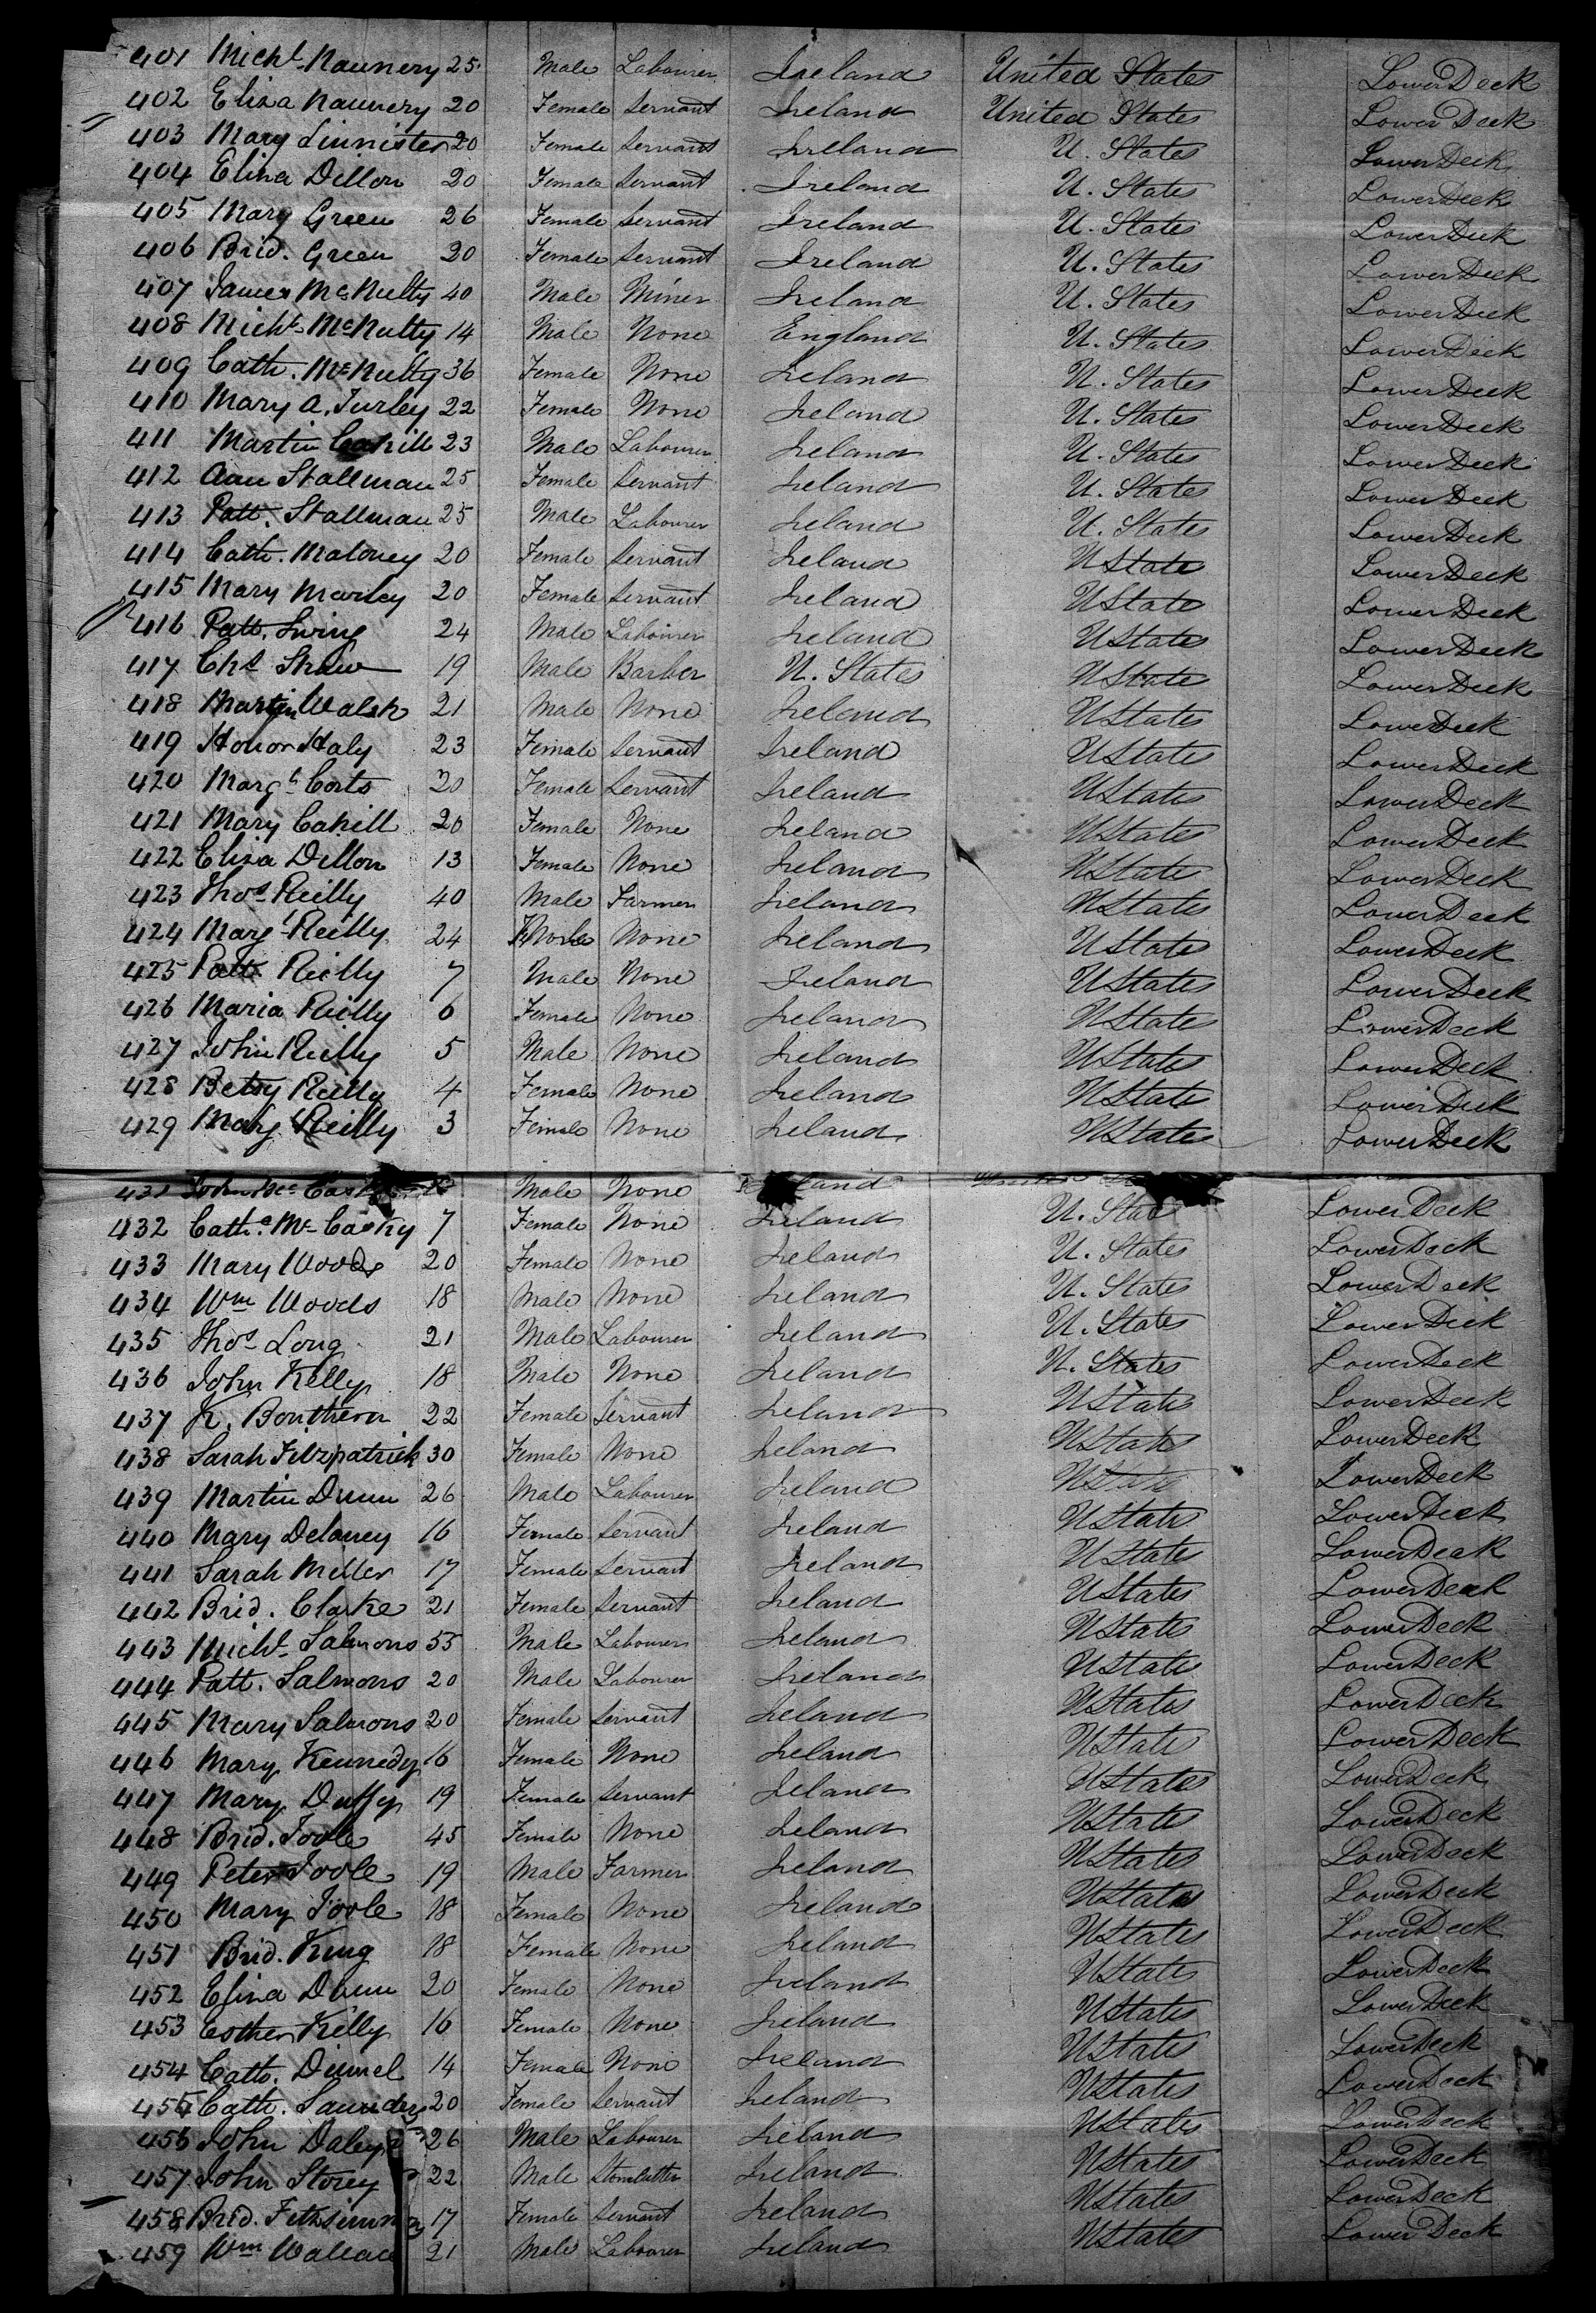 401 Micht. Naunery 25 Male Labourer Ireland United States Lower Deck
402 Eliza Naunery 20 Female Servant Ireland United States Lower Deck
403 Mary Linnister 20 Female Servant Ireland U. States Lower Deck
404 Eliza Dillon 20 Female Servant Ireland U. States Lower Deck
405 Mary Green 26 Female Servant Ireland U. States Lower Deck
406 Brid. Green 20 Female Servant Ireland U. States Lower Deck
407 James McNulty 40 Male Miner Ireland U. States Lower Deck
408 Micht. McNulty 14 Male None England U. States Lower Deck
409 Cath. McNulty 36 Female None Ireland U. States Lower Deck
410 Mary A. Turley 22 Female None Ireland U. States Lower Deck
411 Martin Cahill 23 Male Labourer Ireland U. States Lower Deck
412 Ann Stallman 25 Female Servant Ireland U. States Lower Deck
413 Patt. Stallman 25 Male Labourer Ireland U. States Lower Deck
414 Cath. Maloney 20 Female Servant Ireland U States Lower Deck
415 Mary Marley 20 Female Servant Ireland U States Lower Deck
416 Patt. 24 Male Labourer Ireland U States Lower Deck
417 Chs. Shaw 19 Male Barber U. States U States Lower Deck
418 Martin Walsh 21 Male None Ireland U States Lower Deck
419 Honor Haly 23 Female Servant Ireland U States Lower Deck
420 Margt. Corts 20 Female Servant Ireland U States Lower Deck
421 Mary Cahill 20 Female None Ireland U States Lower Deck
422 Eliza Dillon 13 Female None Ireland U States Lower Deck
423 Thos. Reilly 40 Male Farmer Ireland U States Lower Deck
424 Margt. Reilly 24 None Ireland U States Lower Deck
425 Patt. Reilly 7 Male None Ireland U States Lower Deck
426 Maria Reilly 6 Female None Ireland U States Lower Deck
427 John Reilly 5 Male None Ireland U States Lower Deck
428 Betsy Reilly 4 Female None Ireland U States Lower Deck
429 Margt. Reilly 3 Female None Ireland U States Lower Deck
431 John Mc Male None
432 Cathe. McCasky 7 Female None Ireland U. States Lower Deck
433 Mary Woods 20 Female None Ireland U. States Lower Deck
434 Wm Woods 18 Male None Ireland U. States Lower Deck
435 Thos. Long 21 Male Labourer Ireland U. States Lower Deck
436 John Kelly 18 Male None Ireland U. States Lower Deck
437 K. Bonthern 22 Female Servant Ireland U States Lower Deck
438 Sarah Fitzpatrick 30 Female None Ireland U States Lower Deck
439 Martin Dunn 26 Male Labourer Ireland U States Lower Deck
440 Mary Delaney 16 Female Servant Ireland U States Lower Deck
441 Sarah Miller 17 Female Servant Ireland U States Lower Deck
442 Brid. Clarke 21 Female Servant Ireland U States Lower Deck
443 Micht. Salmons 55 Male Labourer Ireland U States Lower Deck
444 Patt. Salmons 20 Male Labourer Ireland U States Lower Deck
445 Mary Salmons 20 Female Servant Ireland U States Lower Deck
446 Mary Kennedy 16 Female None Ireland U States Lower Deck
447 Mary Duffy 19 Female Servant Ireland U States Lower Deck
448 Brid. Toole 45 Female None Ireland U States Lower Deck
449 Peter Toole 19 Male Farmer Ireland U States Lower Deck
450 Mary Toole 18 Female None Ireland U States Lower Deck
451 Brid. King 18 Female None Ireland U States Lower Deck
452 Eliza Dunn 20 Female None Ireland U States Lower Deck
453 Esther Kelly 16 Female None Ireland U States Lower Deck
454 Cath. 14 Female None Ireland U States Lower Deck
455 Cath. Saunders 20 Female Servant Ireland U States Lower Deck
456 John Daley 26 Male Labourer Ireland U States Lower Deck
457 John Storey 22 Male Stonecutter Ireland U States Lower Deck
458 Brid. Fitzsimm 17 Female Servant Ireland U States Lower Deck
459 Wm Wallace 21 Male Labourer Ireland U States Lower Deck